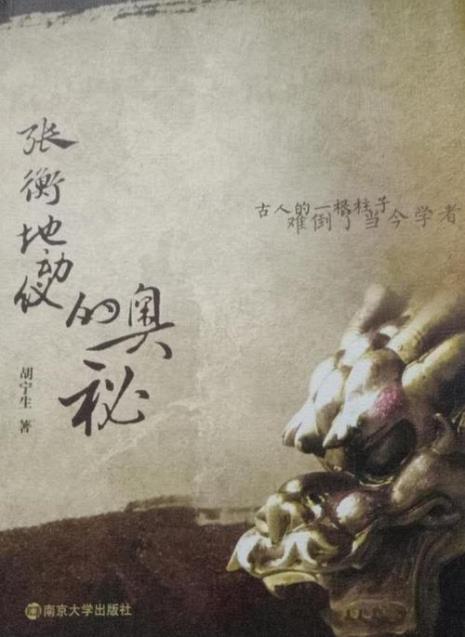 张衡地动仪
的奥秘
古人的一根柱子
难倒了当今学者
胡宁生 著
南京大学出版社